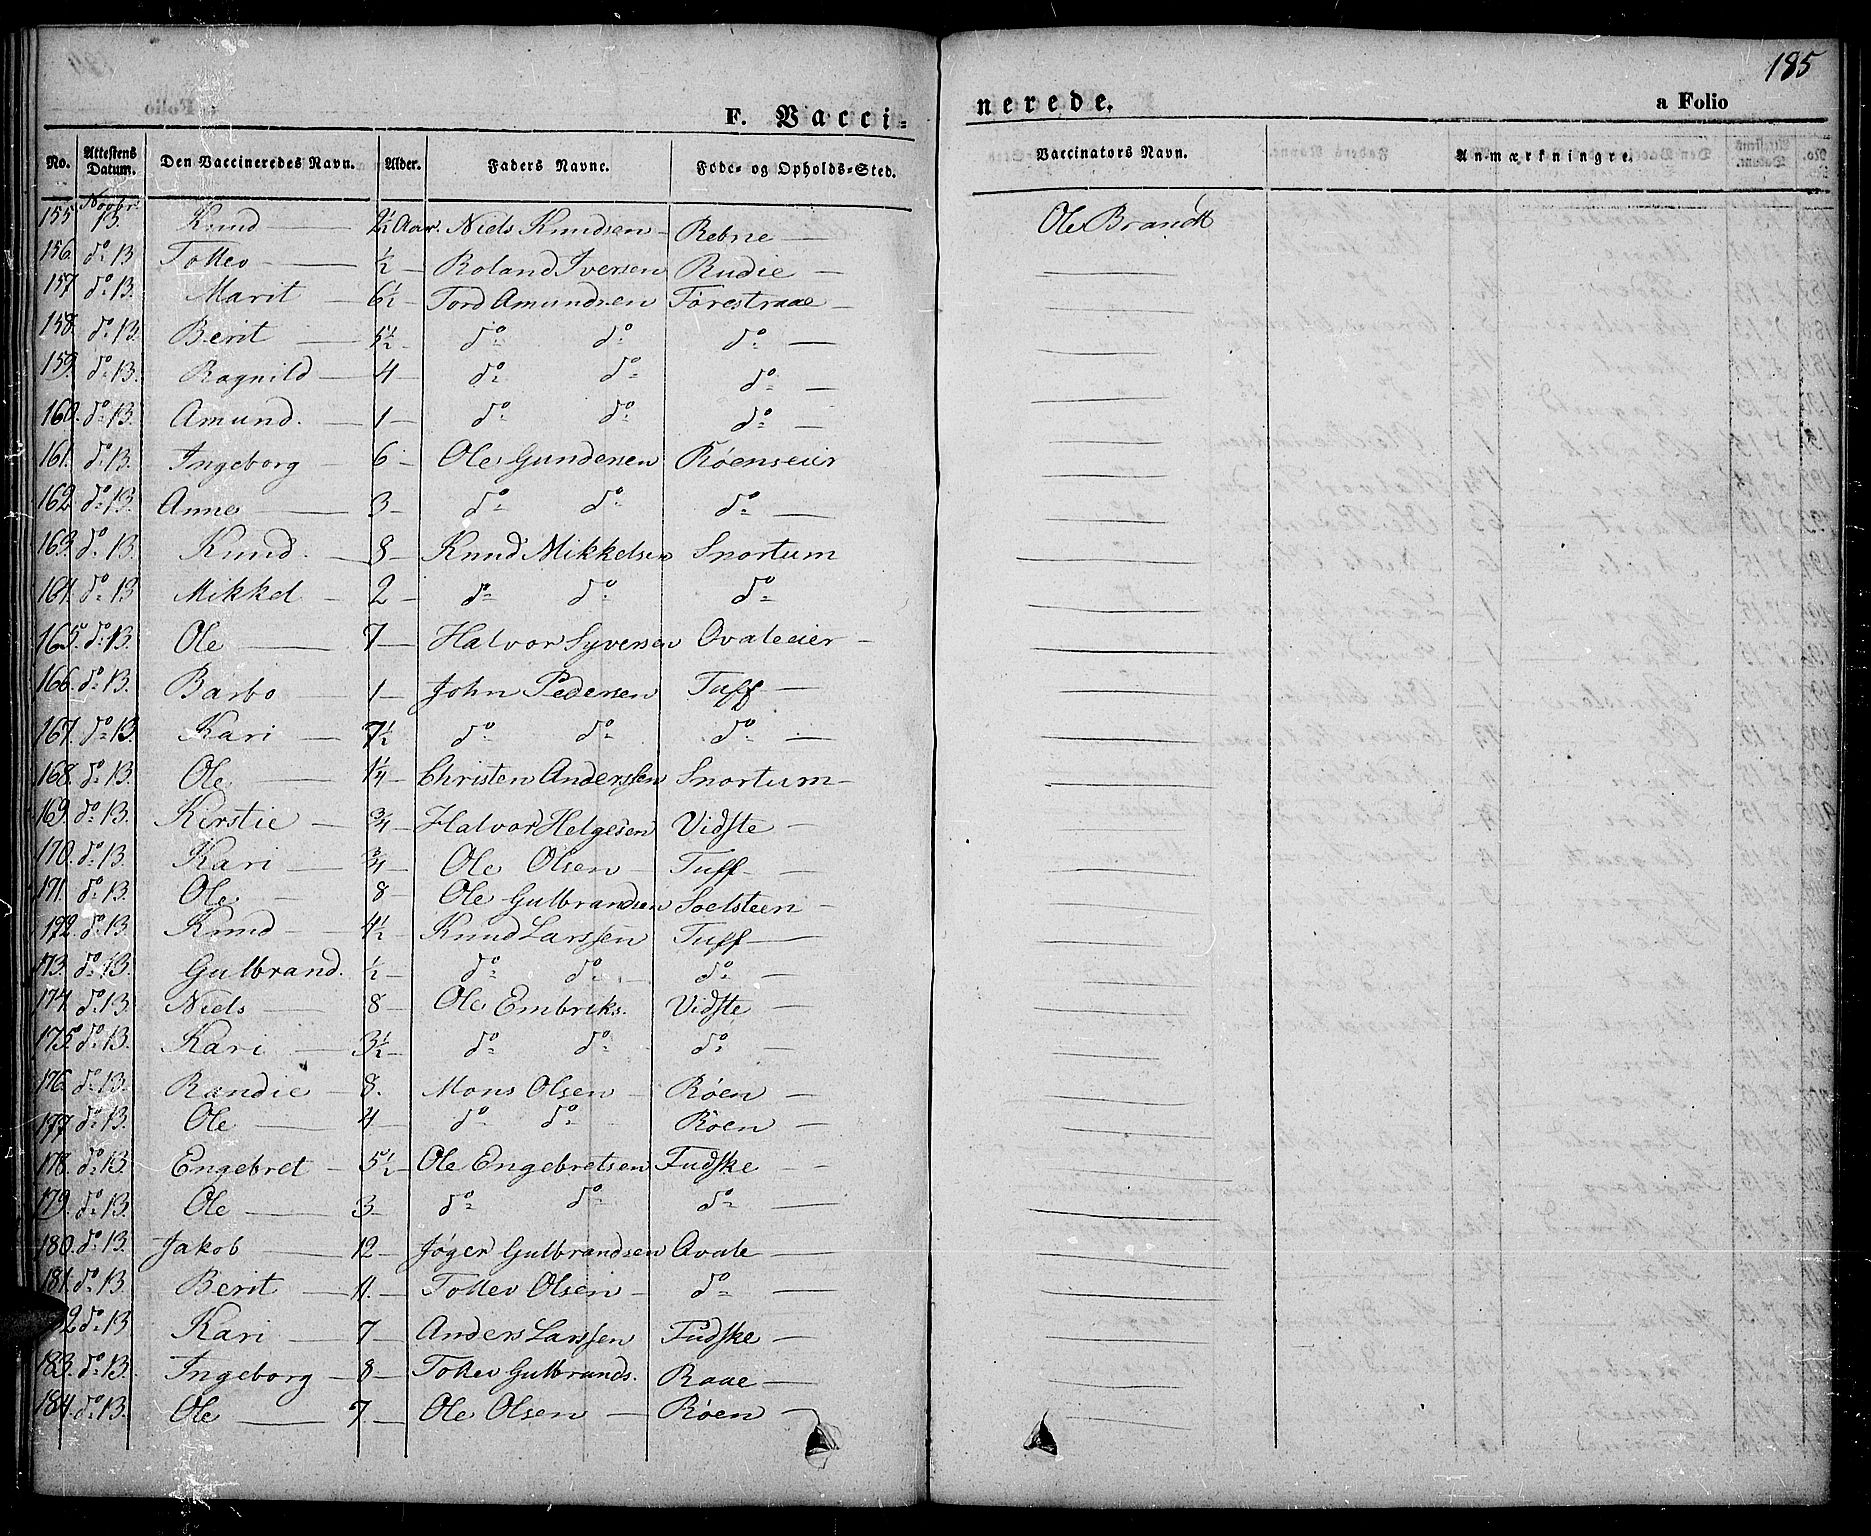 185
F. Vacci=
nerede.
a Folio
No. Attestens Datum. Den Vaccineredes Navn. Alder. Faders Navne. Føde= og Opholds=Sted. Vaccinators Navn. Anmærkningre.
Novbr
155 13. Knud — 2½ Aar. Niels Knudsen — Rebne — Ole Brandt
156. do 13 Tollev — ½ — Roland Iversen Rudie —
157. do 13. Marit — 6½ — Tord Amundsen Førestraae —
158. do 13. Berit — 5½ — do do do —
159. do 13. Ragnild — 4 — do do do —
160. do 13. Amund. — 1 — do do do —
161. do 13. Ingeborg — 6 — Ole Gundersen Røenseier
162. do 13. Anne — 3 — do do do —
163. do 13. Knud. — 8 — Knud Mikkelsen Snortum
164. do 13 Mikkel — 2 — do do do
165. do 13. Ole — 7 — Halvor Syversen Ovaleeier —
166. do 13. Barbo — 1 — John Pedersen Tuff —
167. do 13. Kari — 7½ do do do —
168. do 13. Ole — 1¼ — Christen Anderssen Snortum —
169. do 13. Kirstie — ¾ — Halvor Helgesen Vidste —
170. do 13. Kari — ¾ Ole Olsen — Tuff —
171. do 13. Ole — 8 — Ole Gulbrandsen Soelsteen —
172. do 13. Knud — 4½ — Knud Larssen Tuff —
173. do 13. Gulbrand. ½ — do do do —
174. do 13. Niels — 8 — Ole Embriks. Vidste —
175. do 13. Kari — 3½ — do do do —
176. do 13. Randie — 8. Mons Olsen — Røen —
177. do 13. Ole — 4 — do do Røen —
178. do 13. Engebret — 5½ — Ole Engebretsen Fudske —
179. do 13. Ole — 3 — do do do —
180. do 13. Jakob — 12 — Jøger Gulbrandsen Avale —
181. do 13. Berit — 11. — Tollev Olsen — do —
182 do 13. Kari — 7 — Anders Larssen Fudske —
183. do 13. Ingeborg — 8 — Tollev Gulbrands. Raae —
184. do 13. Ole — 7. — Ole Olsen — Røen —